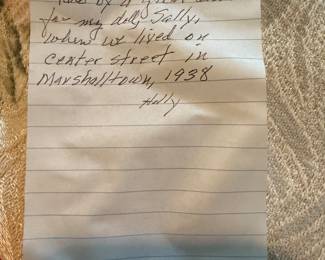 for my dolly Sally,
when we lived on
center street in
Marshalltown, 1938
Holly